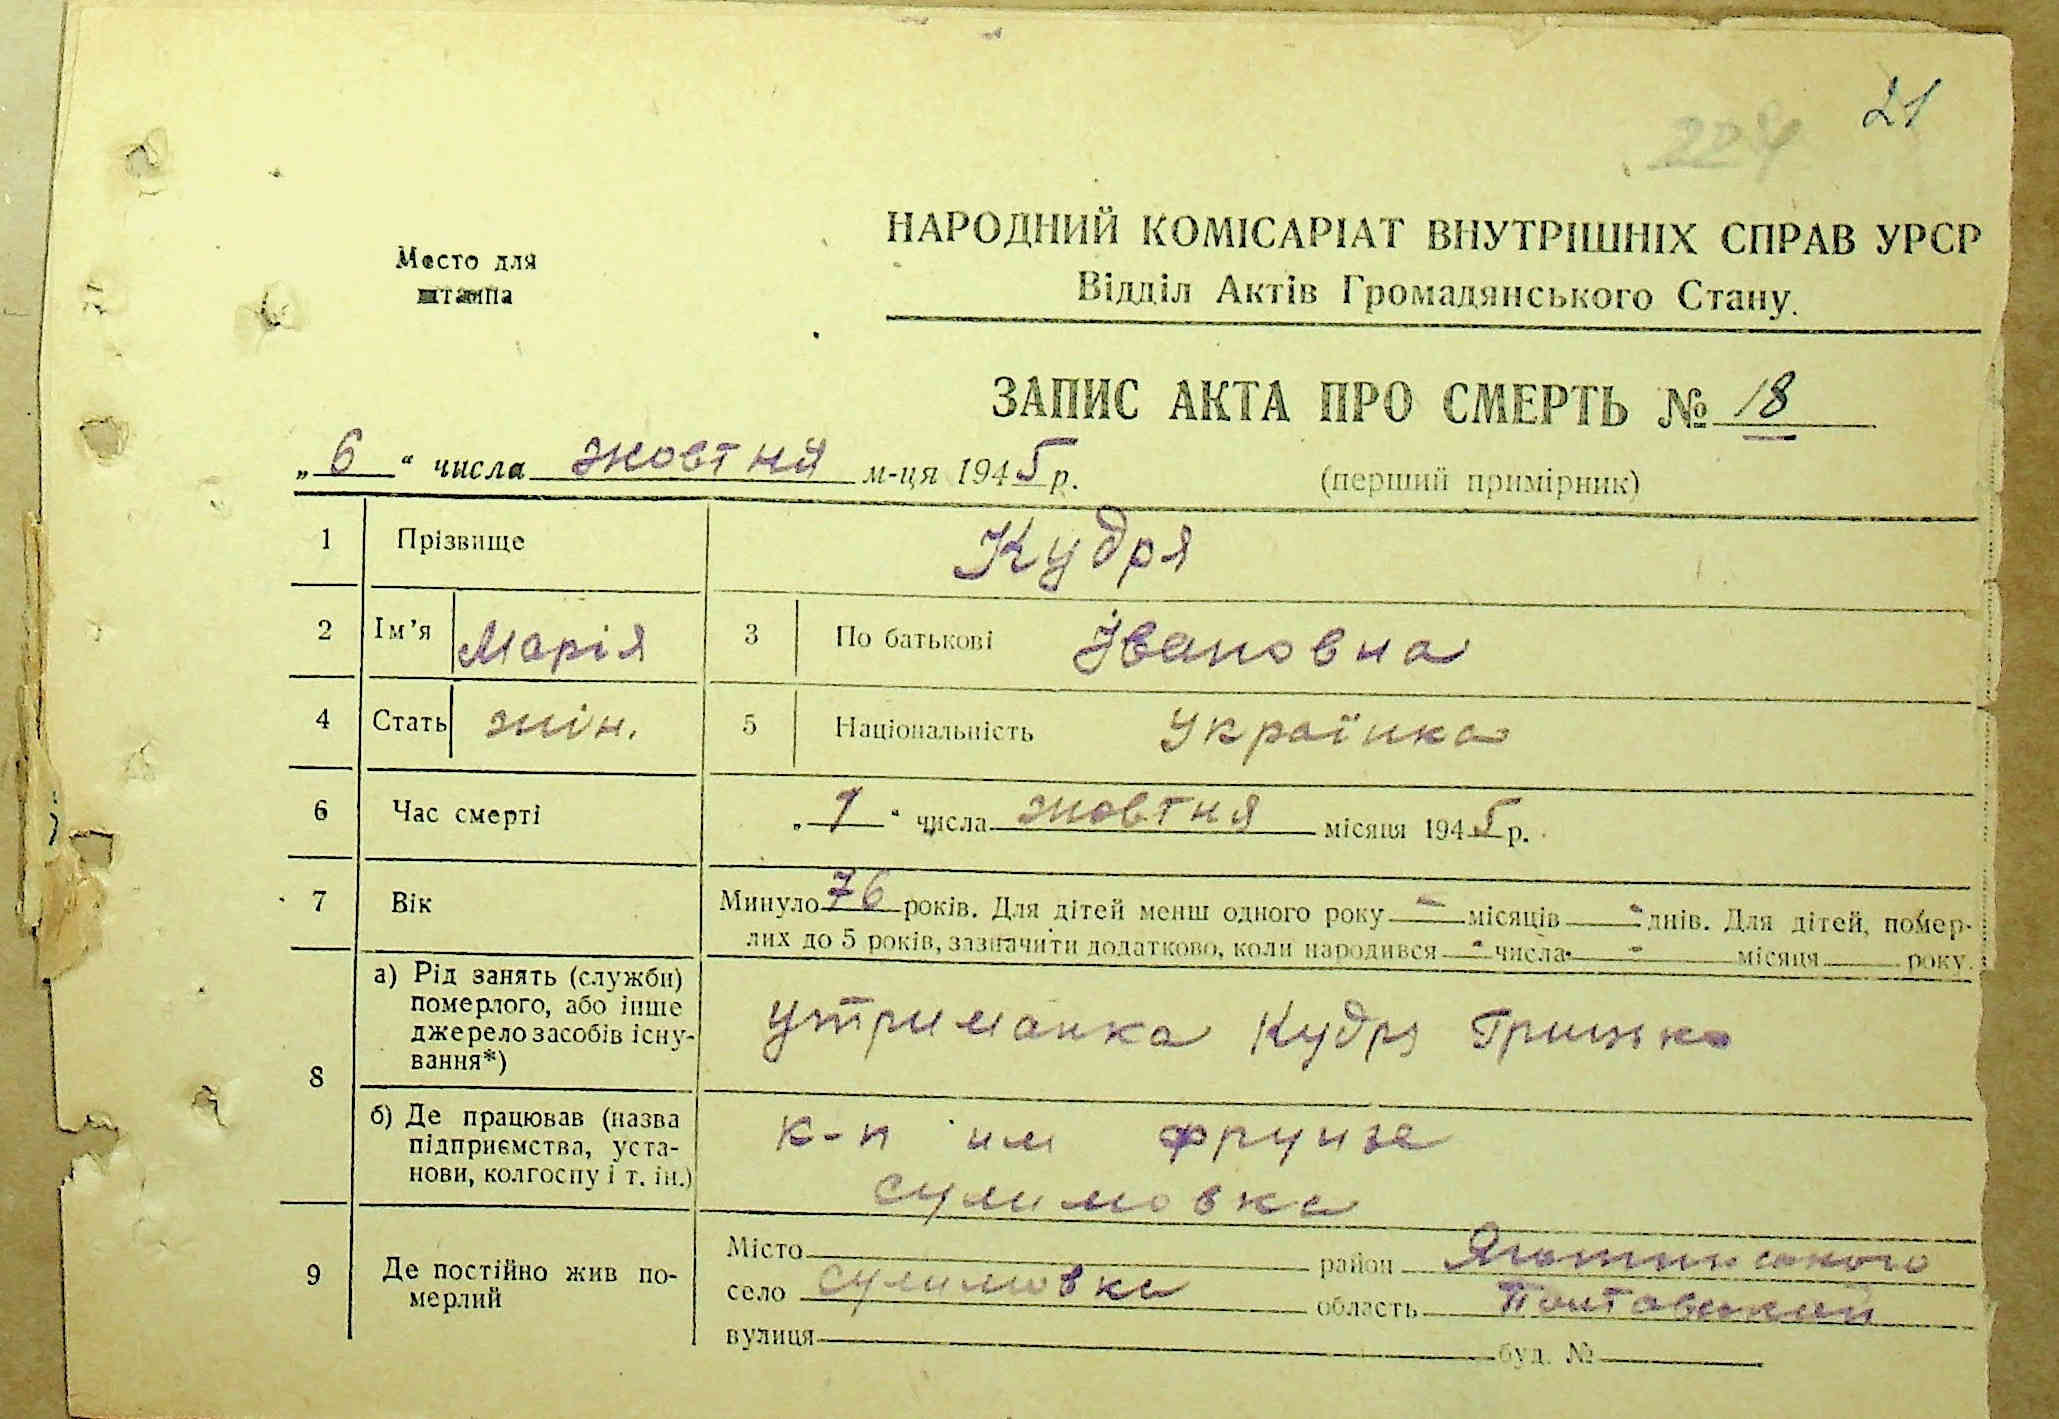 21
204
Место для
штампа
НАРОДНИЙ КОМІСАРІАТ ВНУТРІШНІХ СПРАВ УРСР
Відділ Актів Громадянського Стану.
ЗАПИС АКТА ПРО СМЕРТЬ № 18
„6“ числа жовтня м-ця 1945 р.
(перший примірник)
1 Прізвище Кудря
2 Ім’я Марія 3 По батькові Івановна
4 Стать жін. 5 Національність Українка
6 Час смерті „1“ числа жовтня місяця 1945 р.
7 Вік Минуло 76 років. Для дітей менш одного року - місяців - днів. Для дітей, помер-
лих до 5 років, зазначити додатково, коли народився - числа - місяця року.
8 а) Рід занять (служби)
померлого, або інше
джерело засобів існу-
вання*)
утриманка Кудря Грицька
б) Де працював (назва
підприємства, уста-
нови, колгоспу і т. ін.)
к-п им фрунзе
сулимовка
9 Де постійно жив по-
мерлий
Місто район Яготинського
село сулимовка область Полтавський
вулиця буд. №